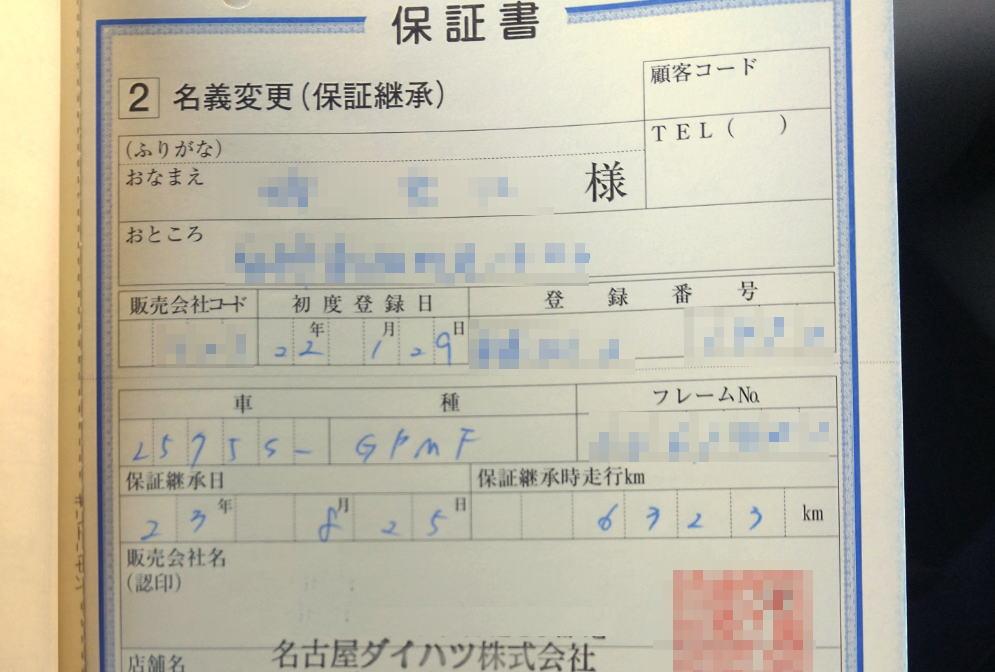 保証書
2 名義変更(保証継承)
顧客コード
TEL( )
(ふりがな)
おなまえ 様
おところ
販売会社コード 初度登録日 登録番号
22年 1月 29日
車種 フレームNo.
L575S- GPMF
保証継承日 保証継承時走行km
23年 8月 25日 6323 km
販売会社名
(認印)
名古屋ダイハツ株式会社
店舗名